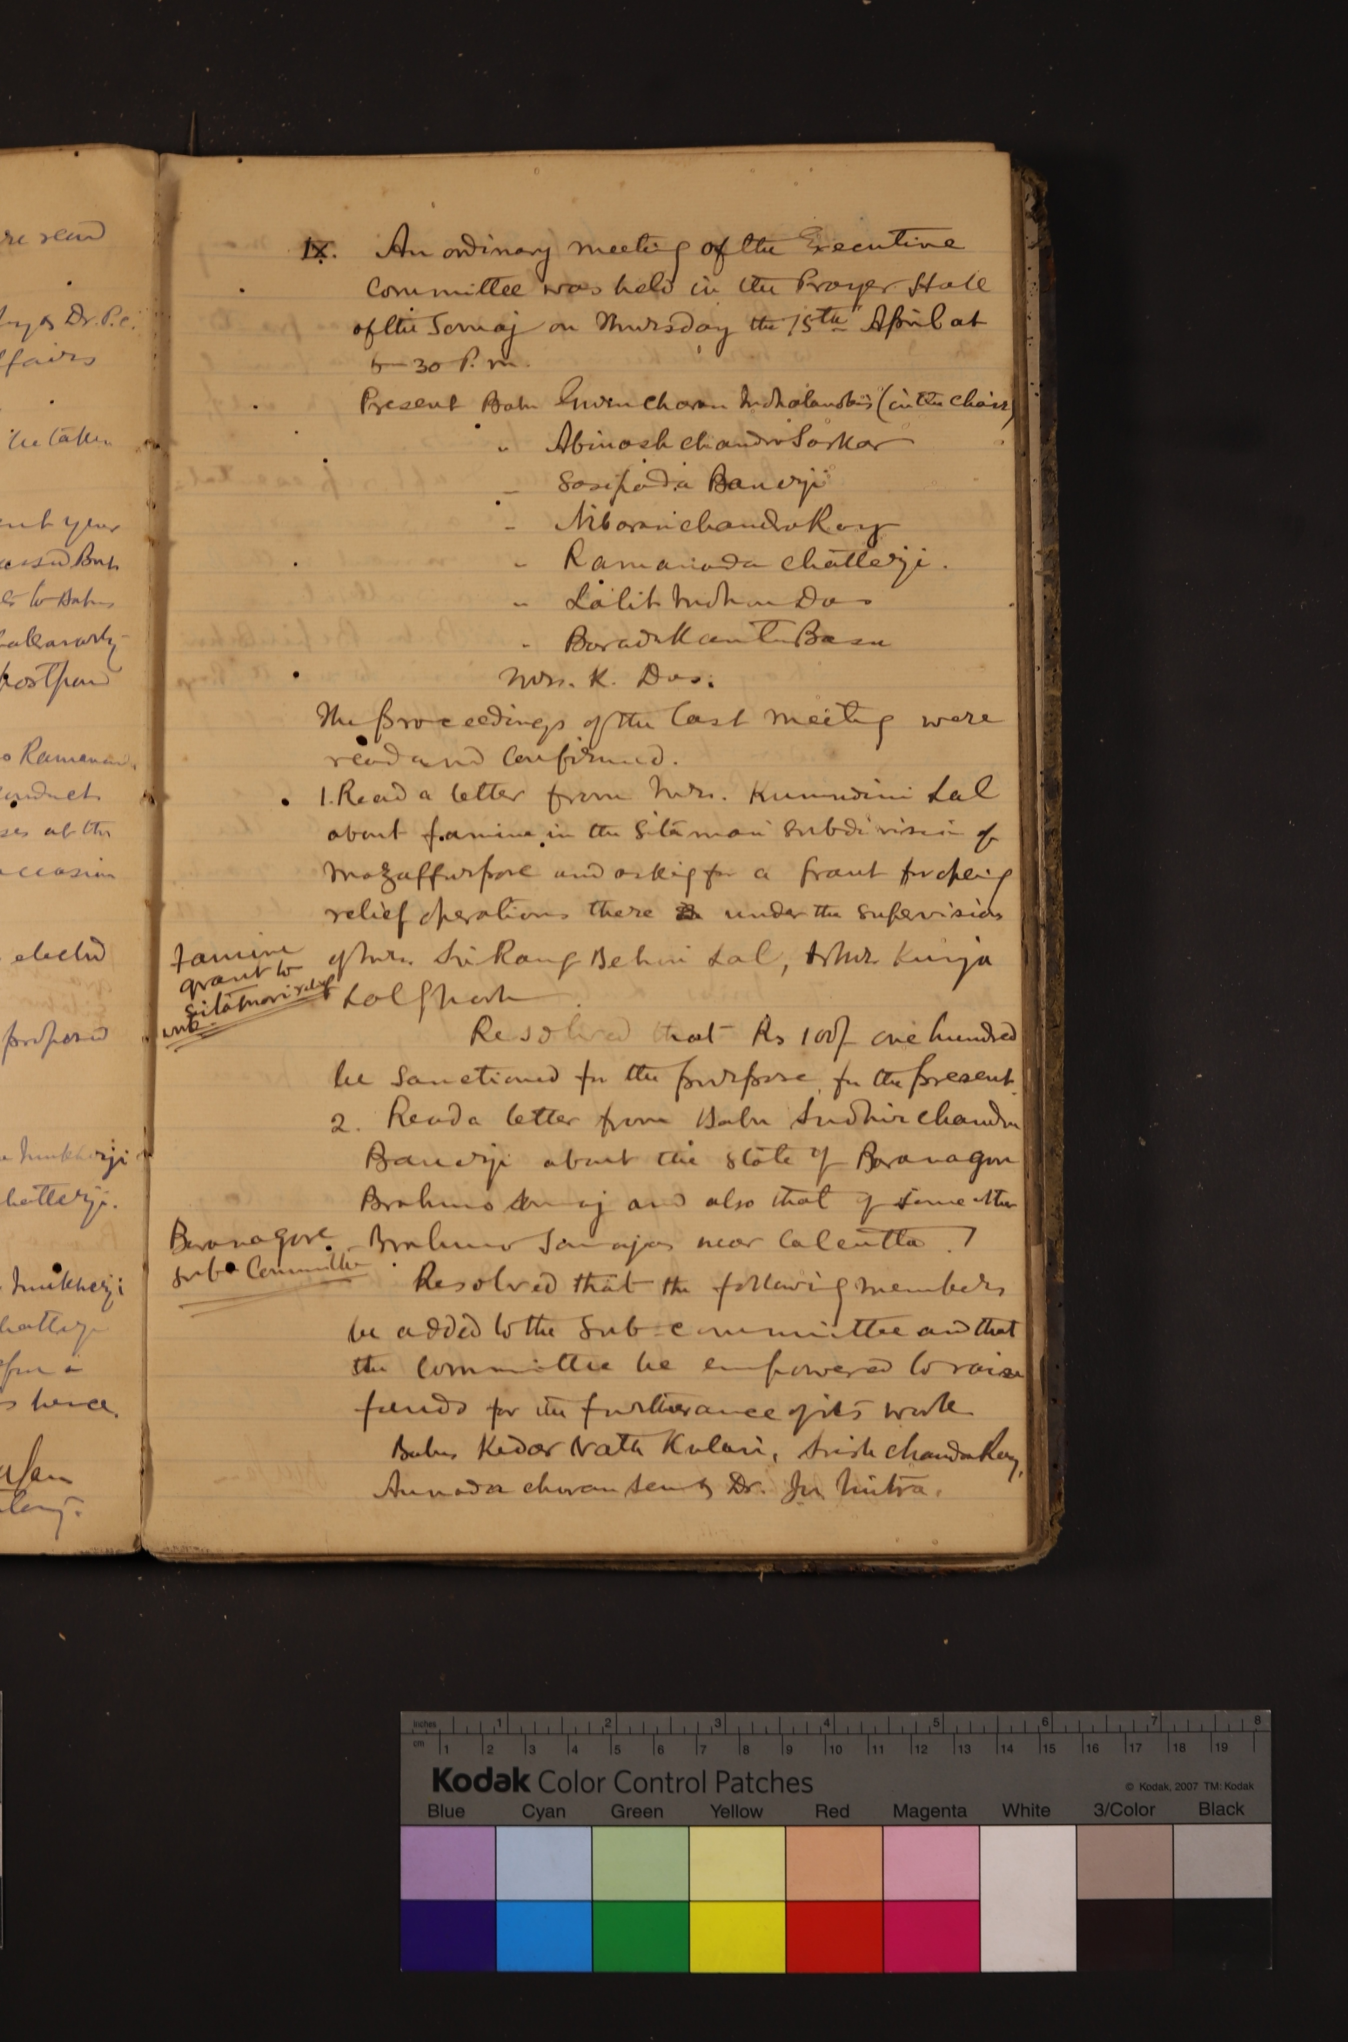 re read
Dr. P. C.
ffairs
be taken
ent year
to Babu
postpone
o Ramanan
conduct
ses at the
occasion
elected
proposed
Mukherji
hatterji.
Mukherji
hatterji
for a
s hence
IX. An ordinary meeting of the Executive
Committee was held in the Prayer Hall
of the Somaj on Thursday the 15th April at
5-30 P.m.
Present Babu Guru Charan Mahalanobis (in the chair)
" Abinash Chandra Sarkar
" Sasipada Banerji
" Nibaran chandra Roy
" Ramananda Chatterji.
" Lalit Mohan Das
" Barada Kanta Basu
Mrs. K. Das.
The proceedings of the last meeting were
read and confirmed.
1. Read a letter from Mrs. Kumudini Lal
about famine in the Sitamari subdivision of
Mozaffurpore and asking for a grant for opening
relief operations there under the supervision
of Mr. Sri Rang Behari Lal, & Mr. Kunja
Lal Ghosh
Famine
grant to
Sitamari relief
work.
Resolved that Rs 100/- one hundred
be sanctioned for the purpose for the present.
2. Read a letter from Babu Sudhir Chandra
Banerji about the state of Baranagore
Brahmo Somaj and also that of some other
Brahmo Somajas near Calcutta.
Baranagore
Sub-Committee
Resolved that the following members
be added to the Sub-committee and that
the Committee be empowered to raise
funds for the furtherance of its work
Babus Kedar Nath Kulavi, Srish Chandra Roy,
Annada charan Sen & Dr. Mitra.
inches 1 2 3 4 5 6 7 8
cm 1 2 3 4 5 6 7 8 9 10 11 12 13 14 15 16 17 18 19
Kodak Color Control Patches © Kodak, 2007 TM: Kodak
Blue Cyan Green Yellow Red Magenta White 3/Color Black